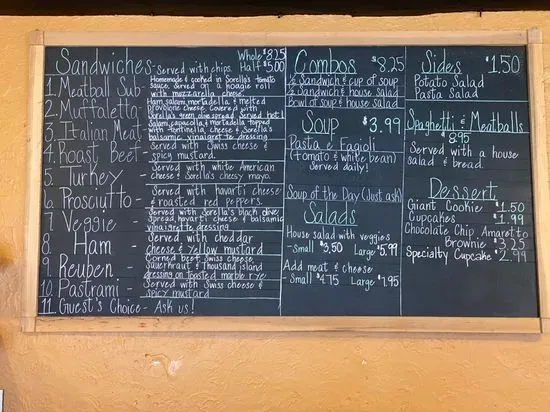 Sandwiches - Served with chips. Whole $8.25
Half $5.00
1. Meatball Sub - Homemade & cooked in Sorella's tomato
sauce. Served on a hoagie roll
with mozzarella cheese.
2. Muffaletta - Ham, salami, mortadella & melted
provlone cheese. Covered with
Sorella's green olive spread. Served hot!
3. Italian Meat - Salami, capacolla & mortadella topped
with fontinella cheese & Sorella's
balsamic vinaigrette dressing.
4. Roast Beef - Served with Swiss cheese &
spicy mustard.
5. Turkey - Served with white American
cheese & Sorella's chesy mayo.
6. Prosciutto - Served with havarti cheese
& roasted red peppers.
7. Veggie - Served with Sorella's black olive
spread, havarti cheese & balsamic
vinaigrette dressing
8. Ham - Served with cheddar
cheese & yellow mustard
9. Reuben - Corned beef, Swiss cheese,
Sauerkraut & Thousand island
dressing on toasted marble rye
10. Pastrami - Served with Swiss cheese &
spicy mustard
11. Guest's Choice - Ask us!
Combos $8.25
½ Sandwich & cup of soup
½ Sandwich & house salad
Bowl of soup & house salad
Soup $3.99
Pasta e Fagioli
(tomato & white bean)
Served daily!
Soup of the Day (Just ask)
Salads
House salad with veggies
- Small $3.50 Large $5.99
Add meat & cheese
- Small $4.75 Large $7.95
Sides $1.50
Potato Salad
Pasta Salad
Spaghetti & Meatballs
$8.95
Served with a house
salad & bread.
Dessert
Giant Cookie $1.50
Cupcakes $1.99
Chocolate Chip Amaretto
Brownie $3.25
Specialty Cupcake $2.99